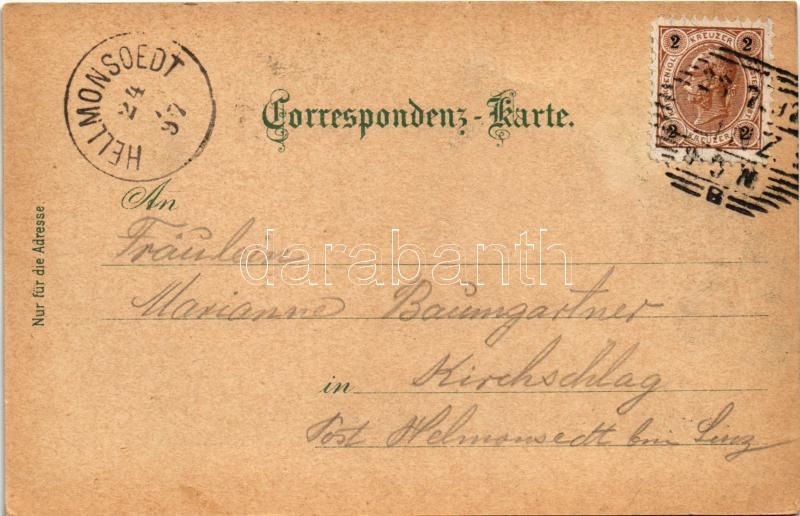 HELLMONSOEDT
24
2
97
Correspondenz-Karte.
2 KREUZER 2
2 KREUZER 2
8
An
Fräulein
Marianne Baumgartner
in Kirchschlag
Post Helmonsedt bei Linz
Nur für die Adresse
darabanth